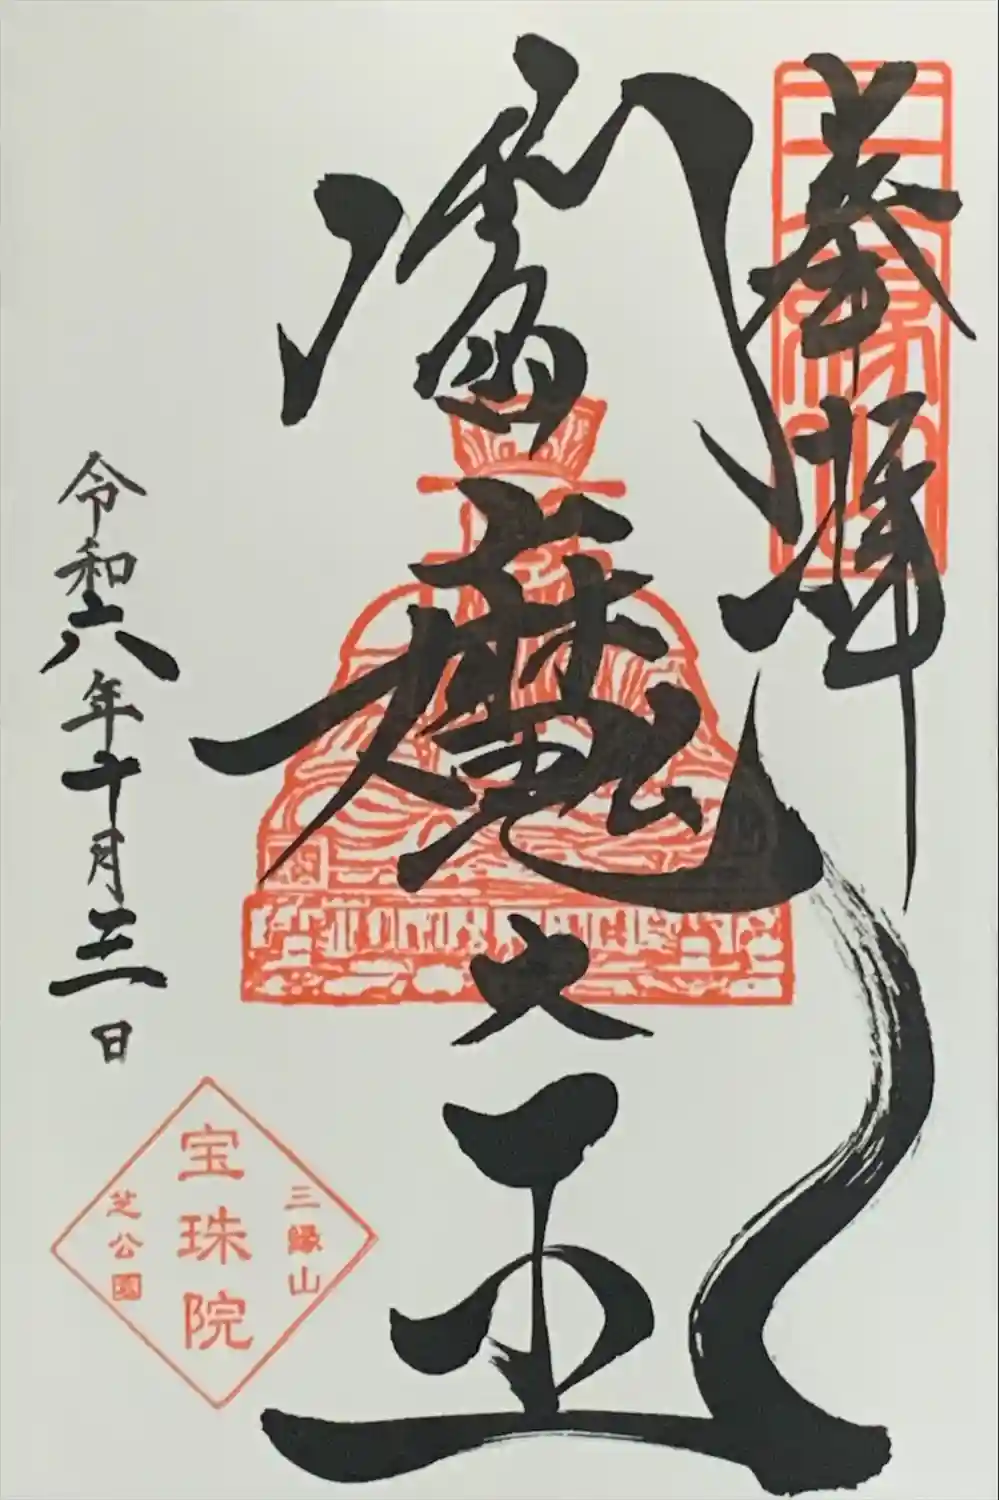 奉拝
三縁山
閻魔大王
令和六年十月三日
三縁山
宝珠院
芝公園